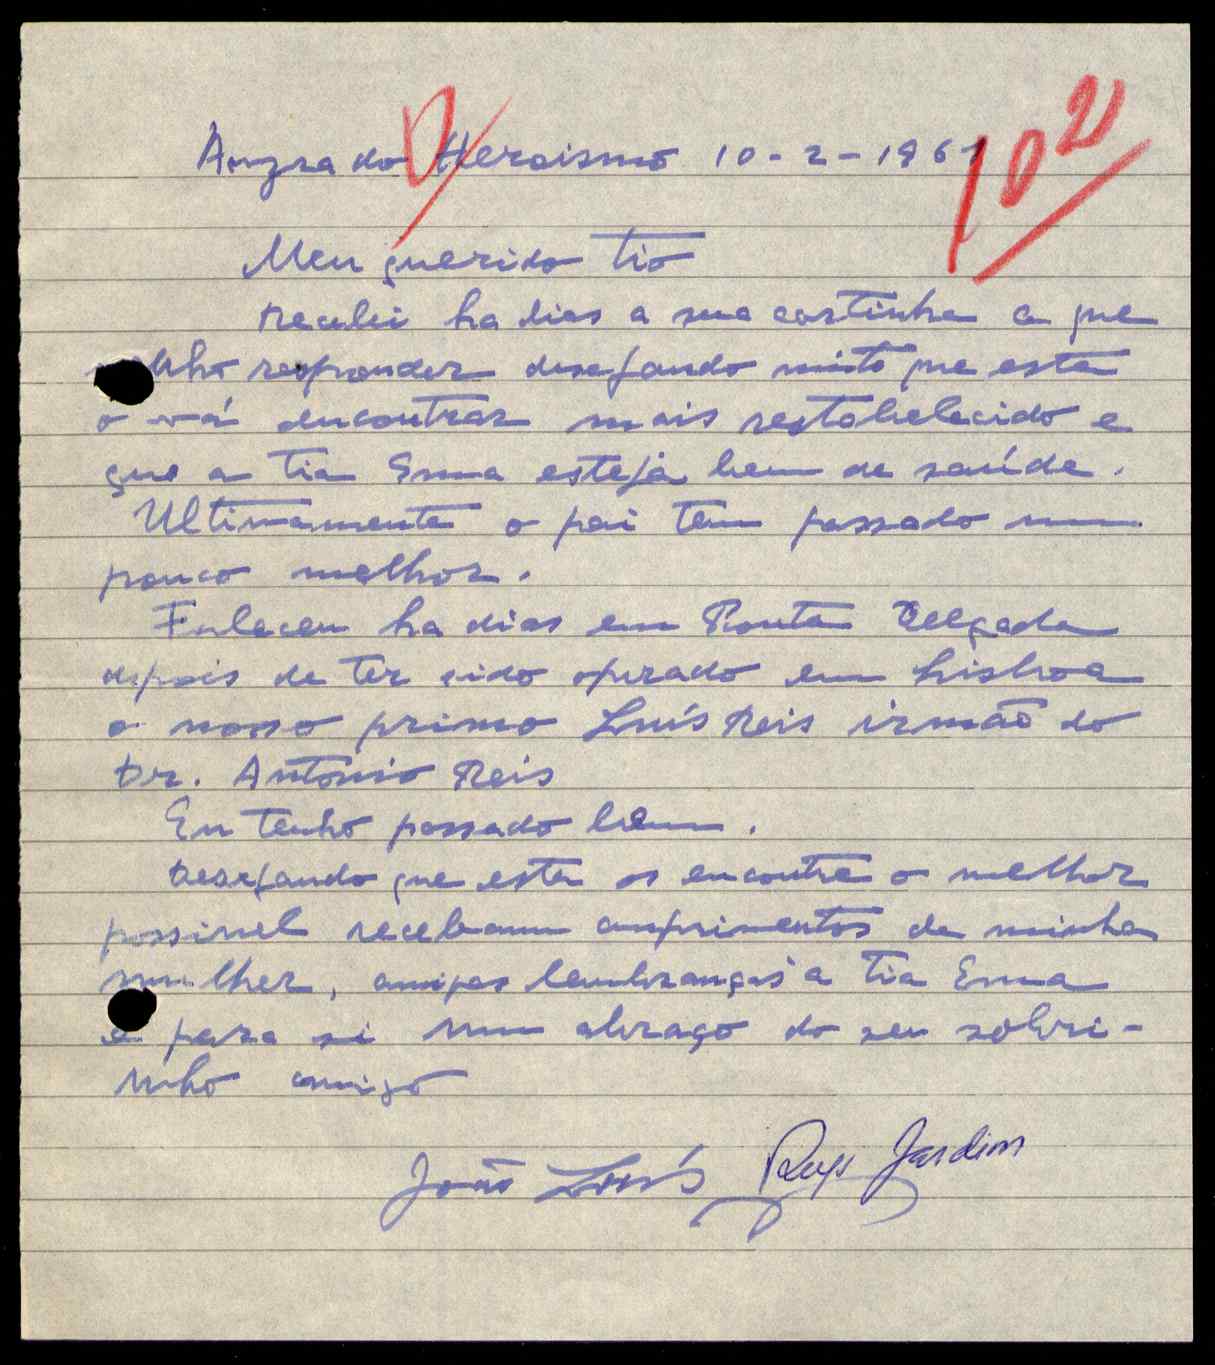 Angra do Heroismo 10-2-1961
Meu querido Tio
Recebi ha dias a sua cartinha a que
venho responder desejando muito que esta
o vá encontrar mais restabelecido e
que a tia Ema esteja bem de saúde.
Ultimamente o pai tem passado um
pouco melhor.
Faleceu ha dias em Ponta Delgada
depois de ter sido operado em Lisboa
o nosso primo Luís Reis irmão do
Dr. António Reis
Eu tenho passado bem.
Desejando que esta os encontre o melhor
possivel recebam cumprimentos de minha
mulher, amigas lembranças a tia Ema
e para si um abraço do seu sobri-
nho amigo
João Luís Jardim